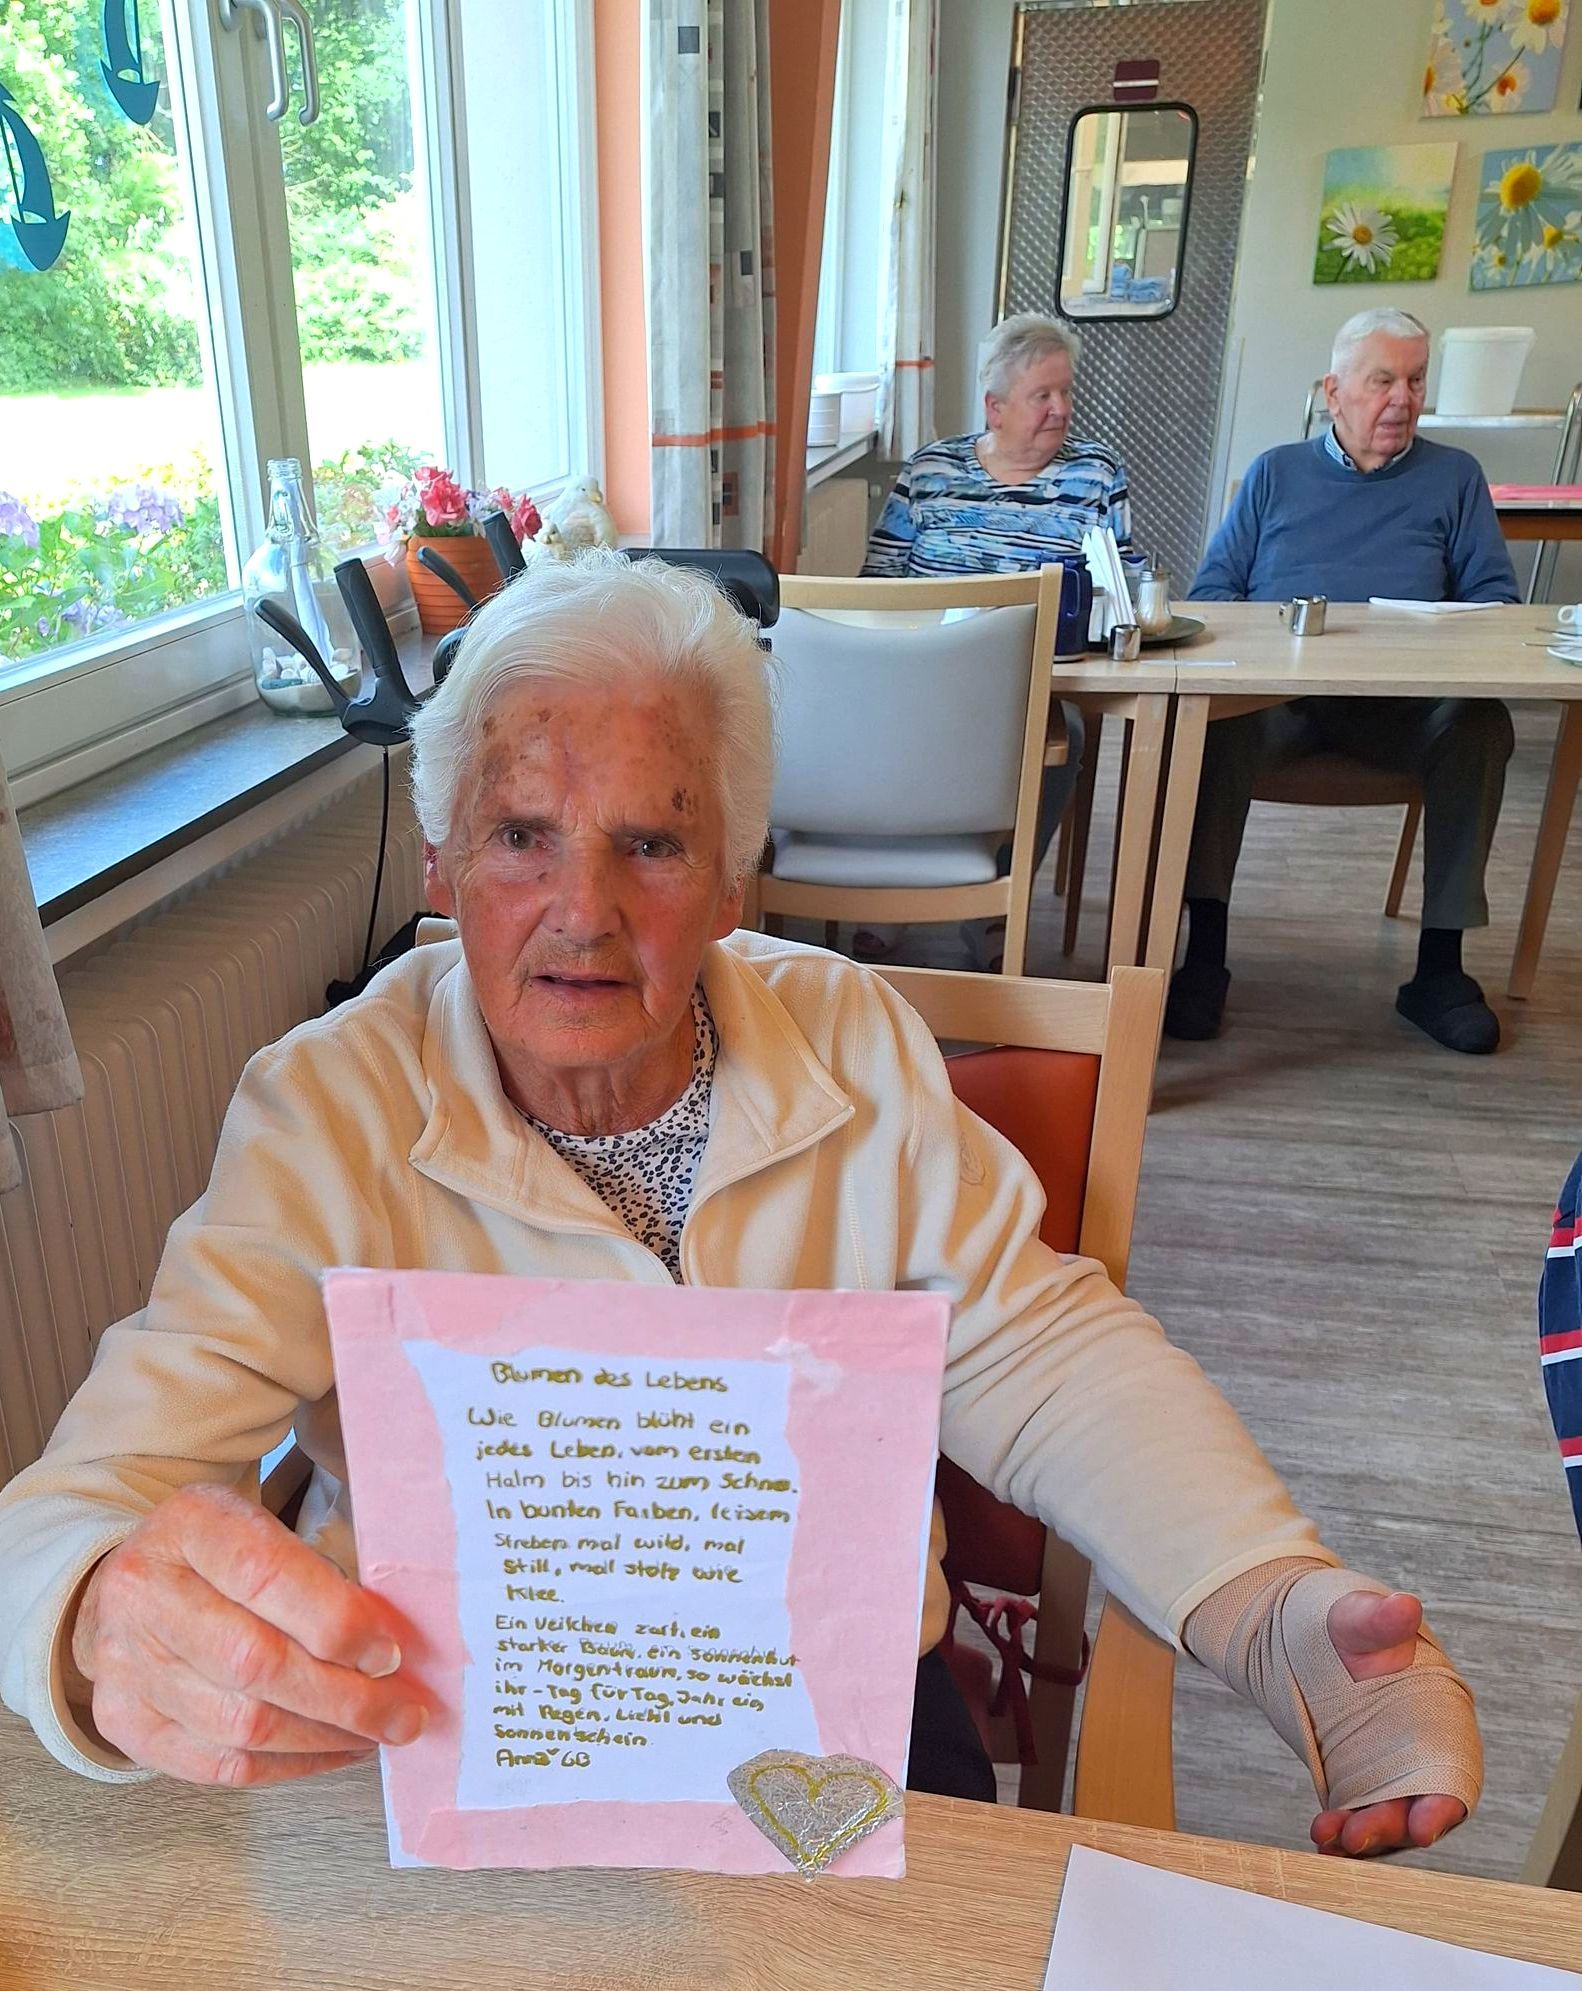 Blumen des Lebens
Wie Blumen blüht ein
jedes Leben, vom ersten
Halm bis hin zum Schnee.
In bunten Farben, leisem
Streben mal wild, mal
Still, mal stolz wie
Klee.
Ein Veilchen zart, ein
starker Baum, ein Sonnenhut
im Morgentraum, so wächst
ihr - Tag für Tag, Jahr ein
mit Regen, Licht und
Sonnenschein.
Anna 6B